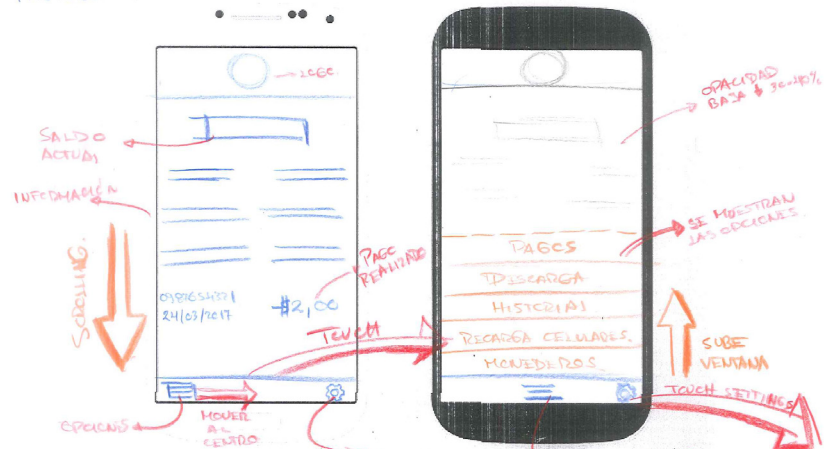 LOGO
SALDO
ACTUAL
INFORMACIÓN
SCROLLING.
PAGO
REALIZADO
0987654321
24/03/2017
-$2,00
TOUCH
OPCIONES
MOVER
AL
CENTRO
OPACIDAD
BAJA 30-40%
SE MUESTRAN
LAS OPCIONES.
PAGOS
DESCARGA
HISTORIAL
RECARGA CELULARES.
MONEDEROS.
SUBE
VENTANA
TOUCH SETTINGS